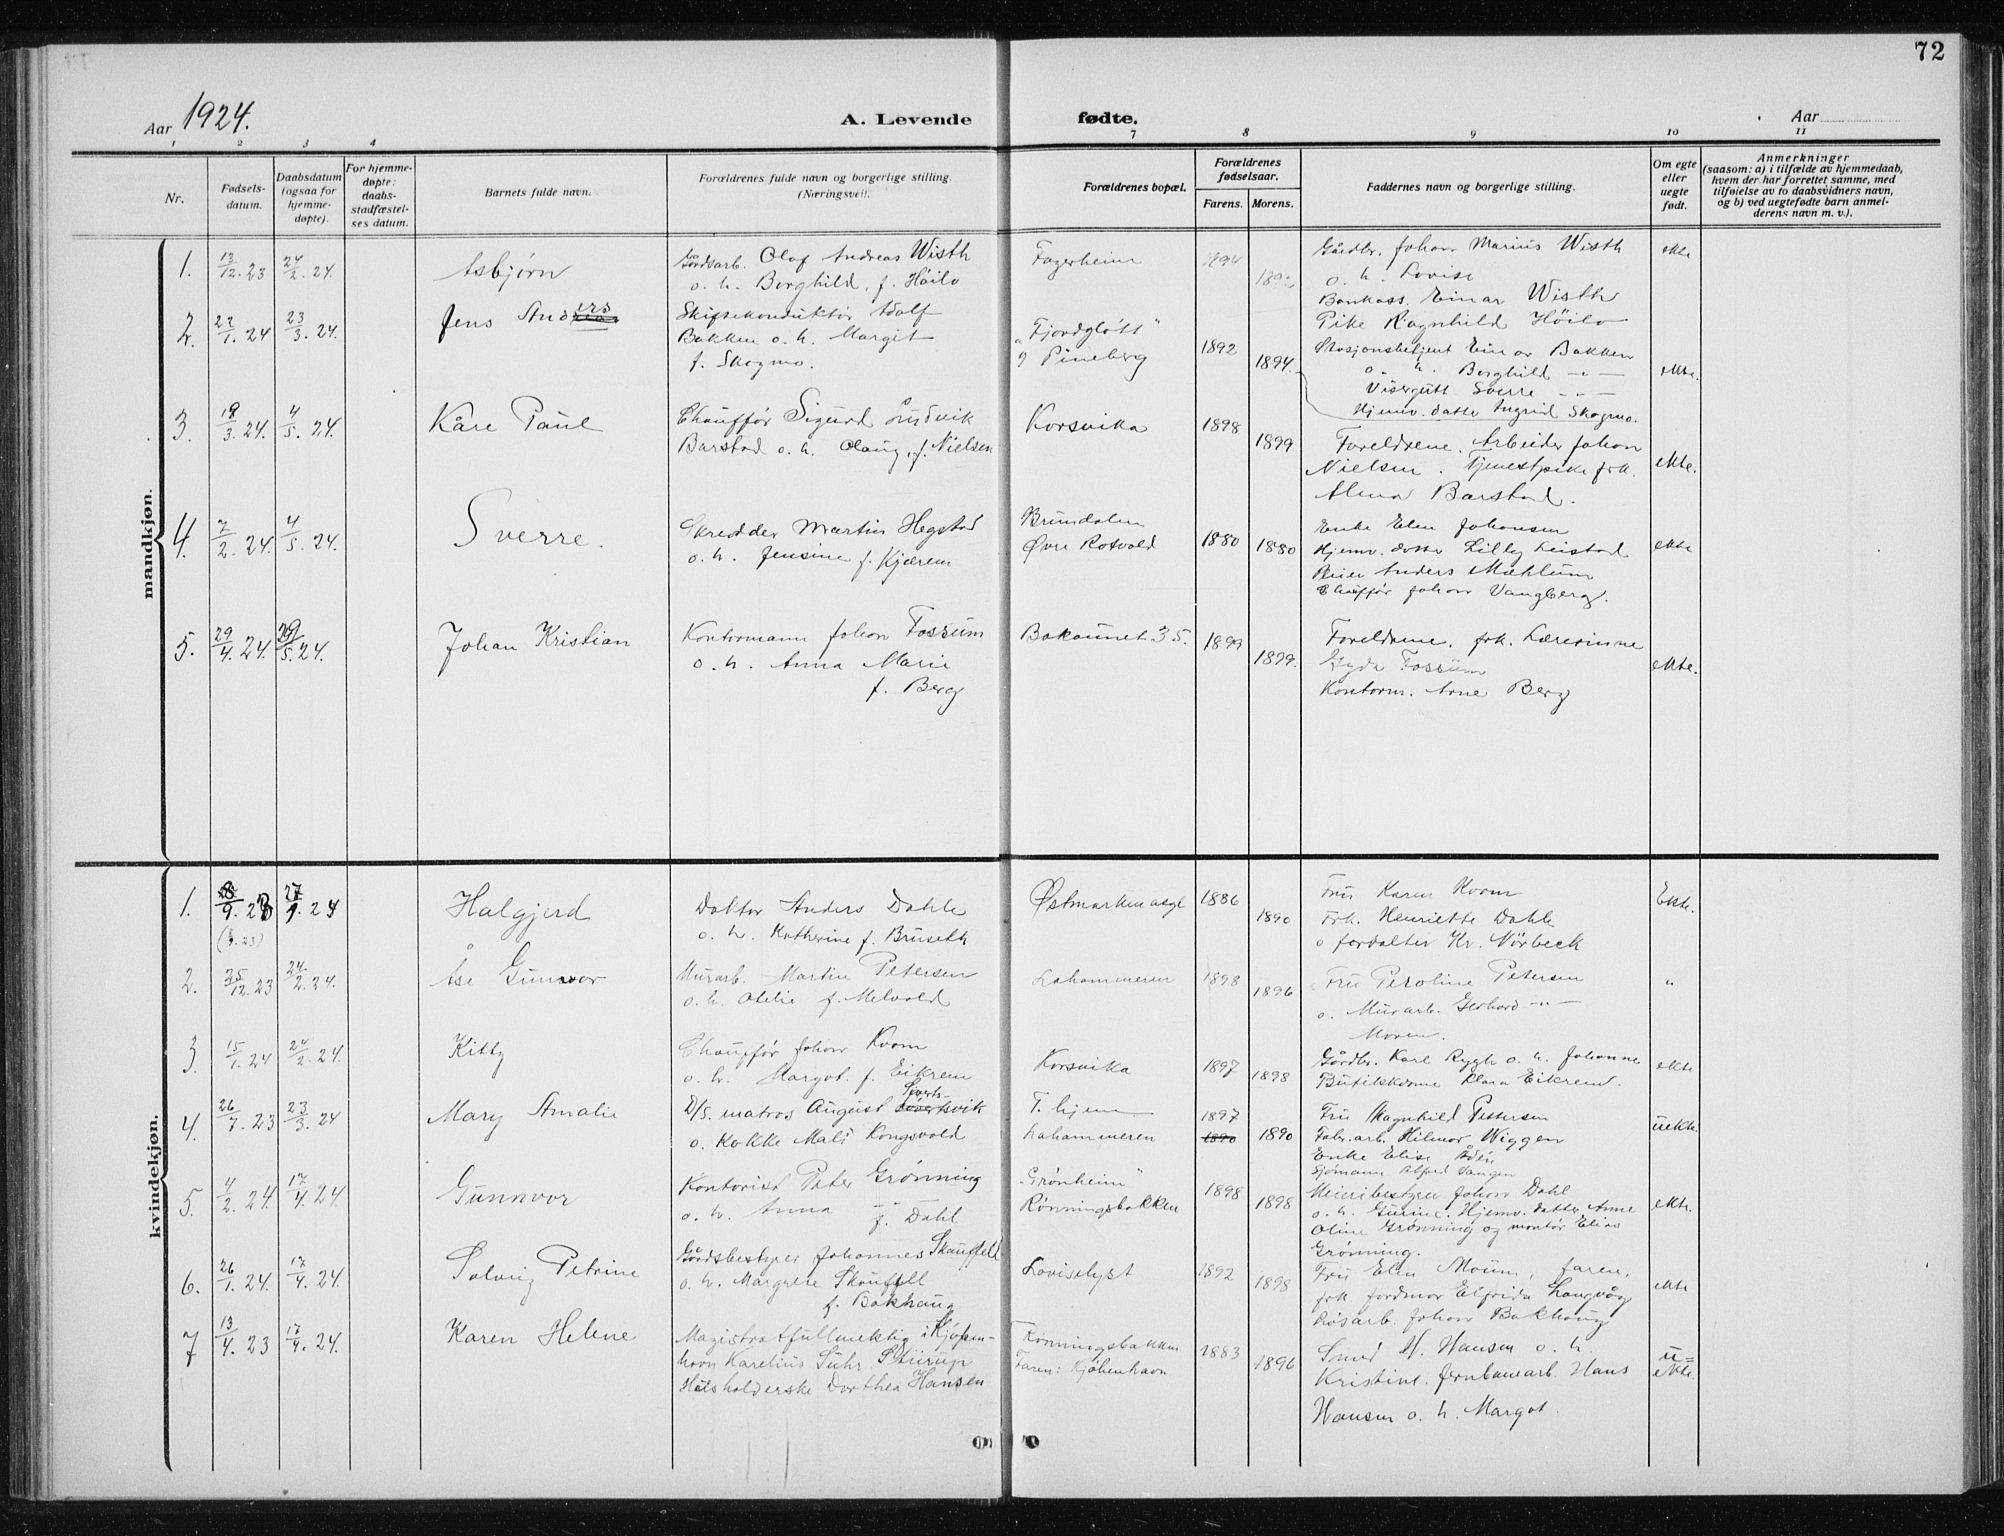 72
Aar 1924.
A. Levende fødte.
Aar
1 2 3 4 7 8 9 10 11
Nr.
Fødsels-
datum.
Daabsdatum
(ogsaa for
hjemme-
døpte).
For hjemme-
døpte:
daabs-
stadfæstel-
ses datum.
Barnets fulde navn.
Forældrenes fulde navn og borgerlige stilling.
(Næringsvei).
Forældrenes bopæl.
Forældrenes
fødselsaar.
Farens. Morens.
Faddernes navn og borgerlige stilling.
Om egte
eller
uegte
født.
Anmerkninger
(saasom: a) i tilfælde av hjemmedaab,
hvem der har forrettet samme, med
tilføielse av to daabsvidners navn,
og b) ved uegtefødte barn anmel-
derens navn m. v.).
mandkjøn.
1. 13/12. 23 24/2. 24. Asbjørn
Gårdsarb. Olaf Andreas Wisth
o. h. Borghild, f. Höilo
Fagerheim
1894 1892
Gårdbr. Johan Marius Wisth
o. h. Lovise
Bankass. Einar Wisth
Pike Ragnhild Höilo
ekte
2. 22/1. 24 23/3. 24. Jens Anders
Skifsekonduktör Adolf
Bakken o. h. Margit
f. Skogmo.
"Fjordglött"
Pineberg
1892 1894.
Stasjonsbetjent Einar Bakken
o. h. Borghild -"-
Visergutt Sverre -"-
Hjemv. datter Ingrid Skogmo.
ekte.
3. 19/3. 24. 4/5. 24. Kåre Paul
Chauffør Sigurd Ludvik
Barstad o. h. Olaug, f. Nielsen
Korsvika
1898 1899
Foreldrene. Arbeider Johan
Nielsen. Tjenestpike frk.
Alma Barstad.
ekte.
4. 7/2. 24. 4/5. 24. Sverre.
Skredder Martin Hegstad
o. h. Jensine f. Kjærem
Brundalen
Øvre Rotvold
1880 1880
Enke Elen Johansen
Hjemv. datter Lilly Leistad
Anders Mæhlum
Chauffør Johan Vangberg.
ekte
5. 29/4. 24. 29/5. 24. Johan Kristian
Kontormann Johan Fossum
o. h. Anna Marie
f. Berg
Bakaunet 35.
1899 1899.
Foreldrene. frk. Lærerinne
Gyda Fossum
Kontorm. Arne Berg
ekte.
kvindekjøn.
1. 8/9. 23 27/9. 23 Halgjerd
Doktor Anders Dahle
o. h. Katherine f. Bruseth
Østmarken asyl
1886 1890
Fru Karen Kvam
Frk. Henriette Dahle
o forvalter Kr. Nörbeck
Ekte.
2. 25/12. 23 24/2. 24. Åse Gunnvor
Murarb. Martin Petersen
o. h. Otelie f. Melvold
Ladehammeren
1898 1896
Fru Peroline Petersen
o. Murarb. Gerhard -"-
Moren.
"
3 15/1. 24 24/2. 24. Kitty
Chauffør Johan Kvam
o. h. Margot. f. Eikrem
Korsvika
1897 1898
Gårdbr. Karl Rygh o. h. Johanne
Butikkdame Klara Eikrem.
ekte
4. 26/7. 23 23/3. 24 Mary Amalie
D/S. matros August Sverts-
vik
o. Kokke Mali Kongsvold
T. hjem
Ladehammeren
1897 1890 1890
Fru Ragnhild Pettersen
Fabr. arb. Hilmar Wiggen
Enke Elise Ådén
Sjømann Alfred Vangen
uekte.
5. 4/2. 24. 17/4. 24 Gunnvor
Kontorist Peter Grønning
o. h. Anna -"- f. Dahl
"Grønheim"
Rønningsbakken
1898 1898
Meieribestyrer Johan Dahl
o. h. Gurine. Hjemv. datter Anne
Oline Grønning og montör Elias
Grønning.
ekte.
6. 26/1. 24. 17/4. 24. Solveig Petrine
Gårdsbestyrer Johannes Skauffell
o. h. Margrete Skauffell
f. Bakhaug
Loviselyst
1892 1898
Fru Elen Moum, faren,
frk. jordmor Elfrida Langvåg
Løsarb. Johan Bakhaug
ekte
7 13/4. 23 17/4. 24. Karen Helene
Magistratfullmektig i Kjøben-
havn Karelius Suhr Stiirup
Husholderske Dorthea Hansen
Rønningsbakken
Faren: Kjøbenhavn
1883 1896
Smed H. Hansen o. h.
Kristine. Jernbanearb. Hans
Hansen o. h. Margot.
u=
ekte.